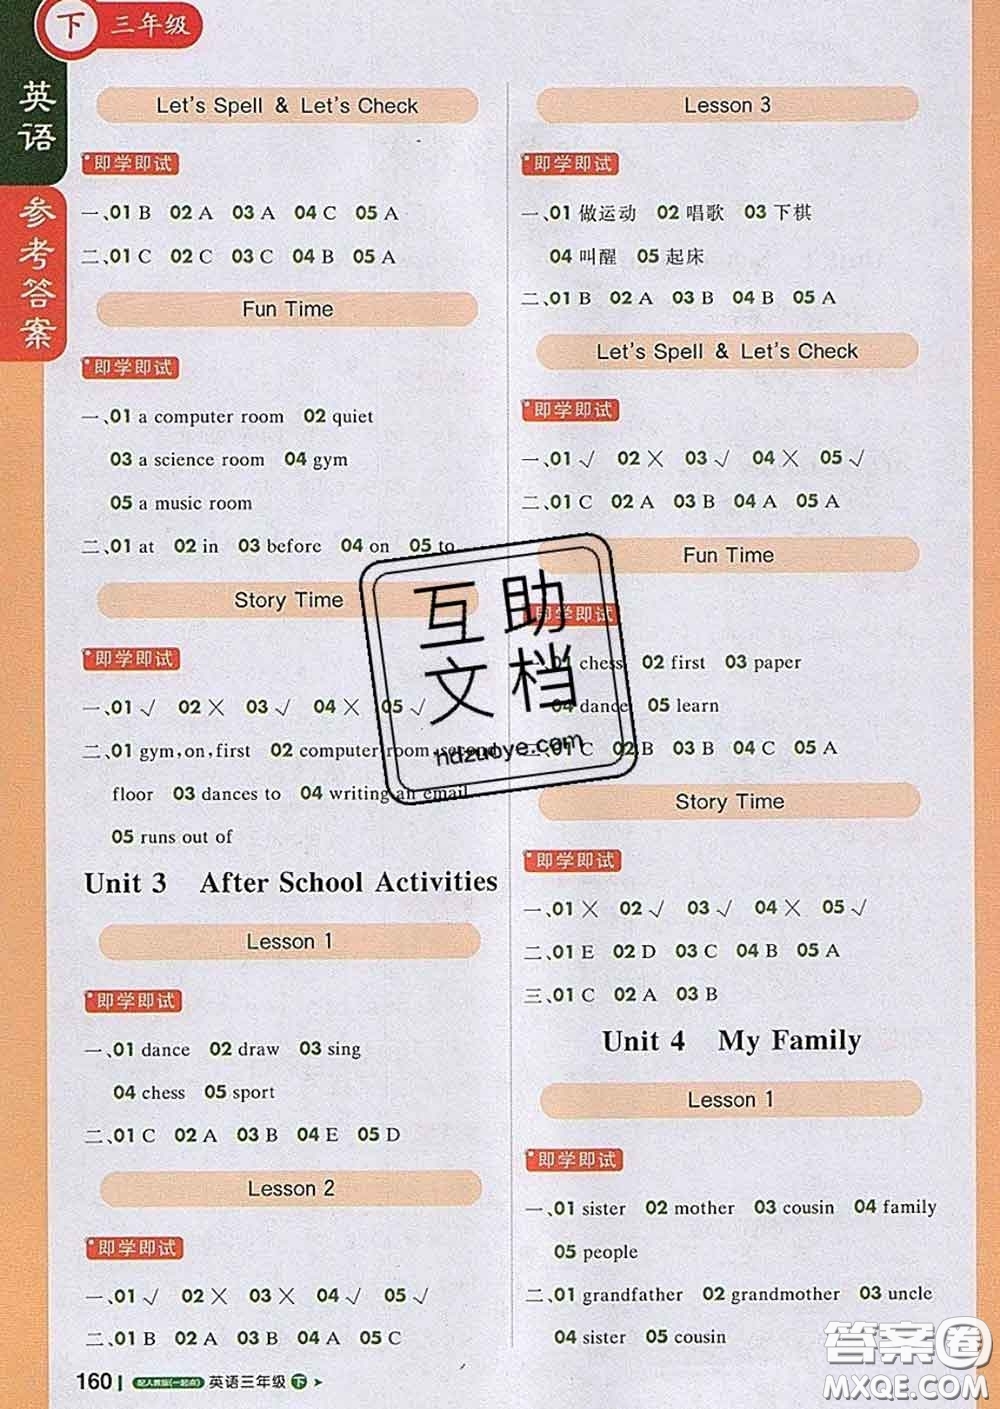 下 三年级
英语
参考答案
Let's Spell & Let's Check
即学即试
一、01 B 02 A 03 A 04 C 05 A
二、01 C 02 C 03 C 04 B 05 A
Fun Time
即学即试
一、01 a computer room 02 quiet
03 a science room 04 gym
05 a music room
二、01 at 02 in 03 before 04 on 05 to
Story Time
即学即试
一、01 √ 02 × 03 √ 04 × 05 √
二、01 gym, on, first 02 computer room, second
floor 03 dances to 04 writing an email
05 runs out of
Unit 3 After School Activities
Lesson 1
即学即试
一、01 dance 02 draw 03 sing
04 chess 05 sport
二、01 C 02 A 03 B 04 E 05 D
Lesson 2
即学即试
一、01 √ 02 × 03 × 04 √ 05 √
二、01 B 02 A 03 B 04 A 05 C
Lesson 3
即学即试
一、01 做运动 02 唱歌 03 下棋
04 叫醒 05 起床
二、01 B 02 A 03 B 04 B 05 A
Let's Spell & Let's Check
即学即试
一、01 √ 02 × 03 √ 04 × 05 √
二、01 C 02 A 03 B 04 A 05 A
Fun Time
即学即试
一、01 chess 02 first 03 paper
04 dance 05 learn
二、01 C 02 B 03 B 04 C 05 A
Story Time
即学即试
一、01 × 02 √ 03 √ 04 × 05 √
二、01 E 02 D 03 C 04 B 05 A
三、01 C 02 A 03 B
Unit 4 My Family
Lesson 1
即学即试
一、01 sister 02 mother 03 cousin 04 family
05 people
二、01 grandfather 02 grandmother 03 uncle
04 sister 05 cousin
160 配人教版(一起点) 英语三年级 下
互助
文档
hdzuoye.com
答案圈
MXQE.COM